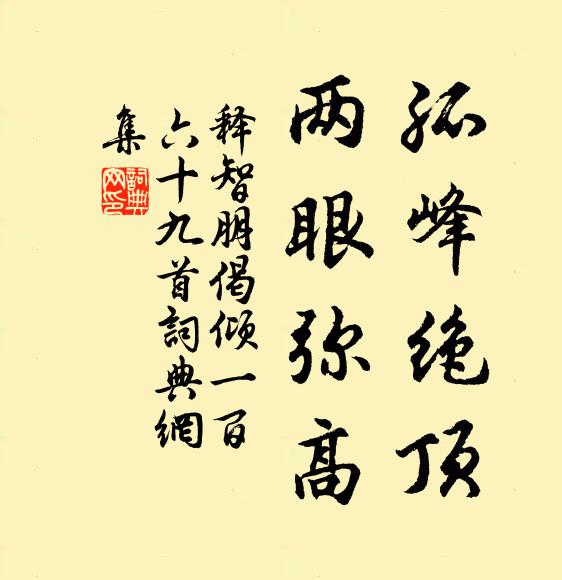 孤峰绝顶
两眼弥高
释智朋偈倾一百
六十九首词典網
集
詞典網印